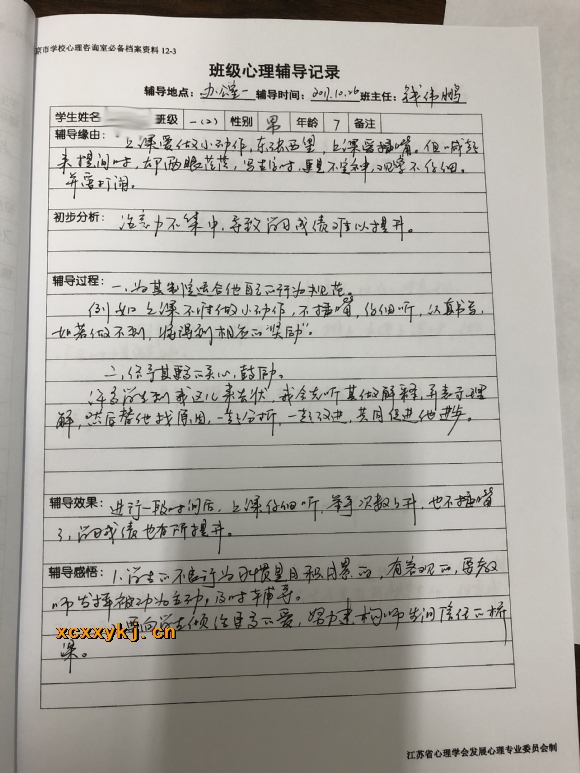 京市学校心理咨询室必备档案资料 12-3
班级心理辅导记录
辅导地点：办公室一 辅导时间：2017.10.26 班主任：钱伟鹏
学生姓名 班级 一（2） 性别 男 年龄 7 备注
辅导缘由：上课爱做小动作，东张西望，上课爱插嘴。但喊起
来提问时，却两眼茫茫，写生字时，更是不定神，观察不仔细。
并爱打闹。
初步分析：注意力不集中，导致学习成绩难以提升。
辅导过程：一、为其制定适合他自己的行为规范。
例如上课不准做小动作，不插嘴，仔细听，认真书写，
如若做不到，将得到相应的“奖励”。
二、给予其更多的关心，鼓励。
许多学生到我这儿来告状，我会先听其做解释，并表示理
解，然后替他找原因，一起分析，一起改进，共同促进他进步。
辅导效果：进行一段时间后，上课仔细听，举手次数上升，也不插嘴
了，学习成绩也有所提升。
辅导感悟：1.学生的不良行为习惯是日积月累的，有客观的，要教
师发挥被动为主动，及时辅导。
要向学生倾注更多的爱，努力建构师生间信任的桥
梁。
xcxxykj.cn
江苏省心理学会发展心理专业委员会制